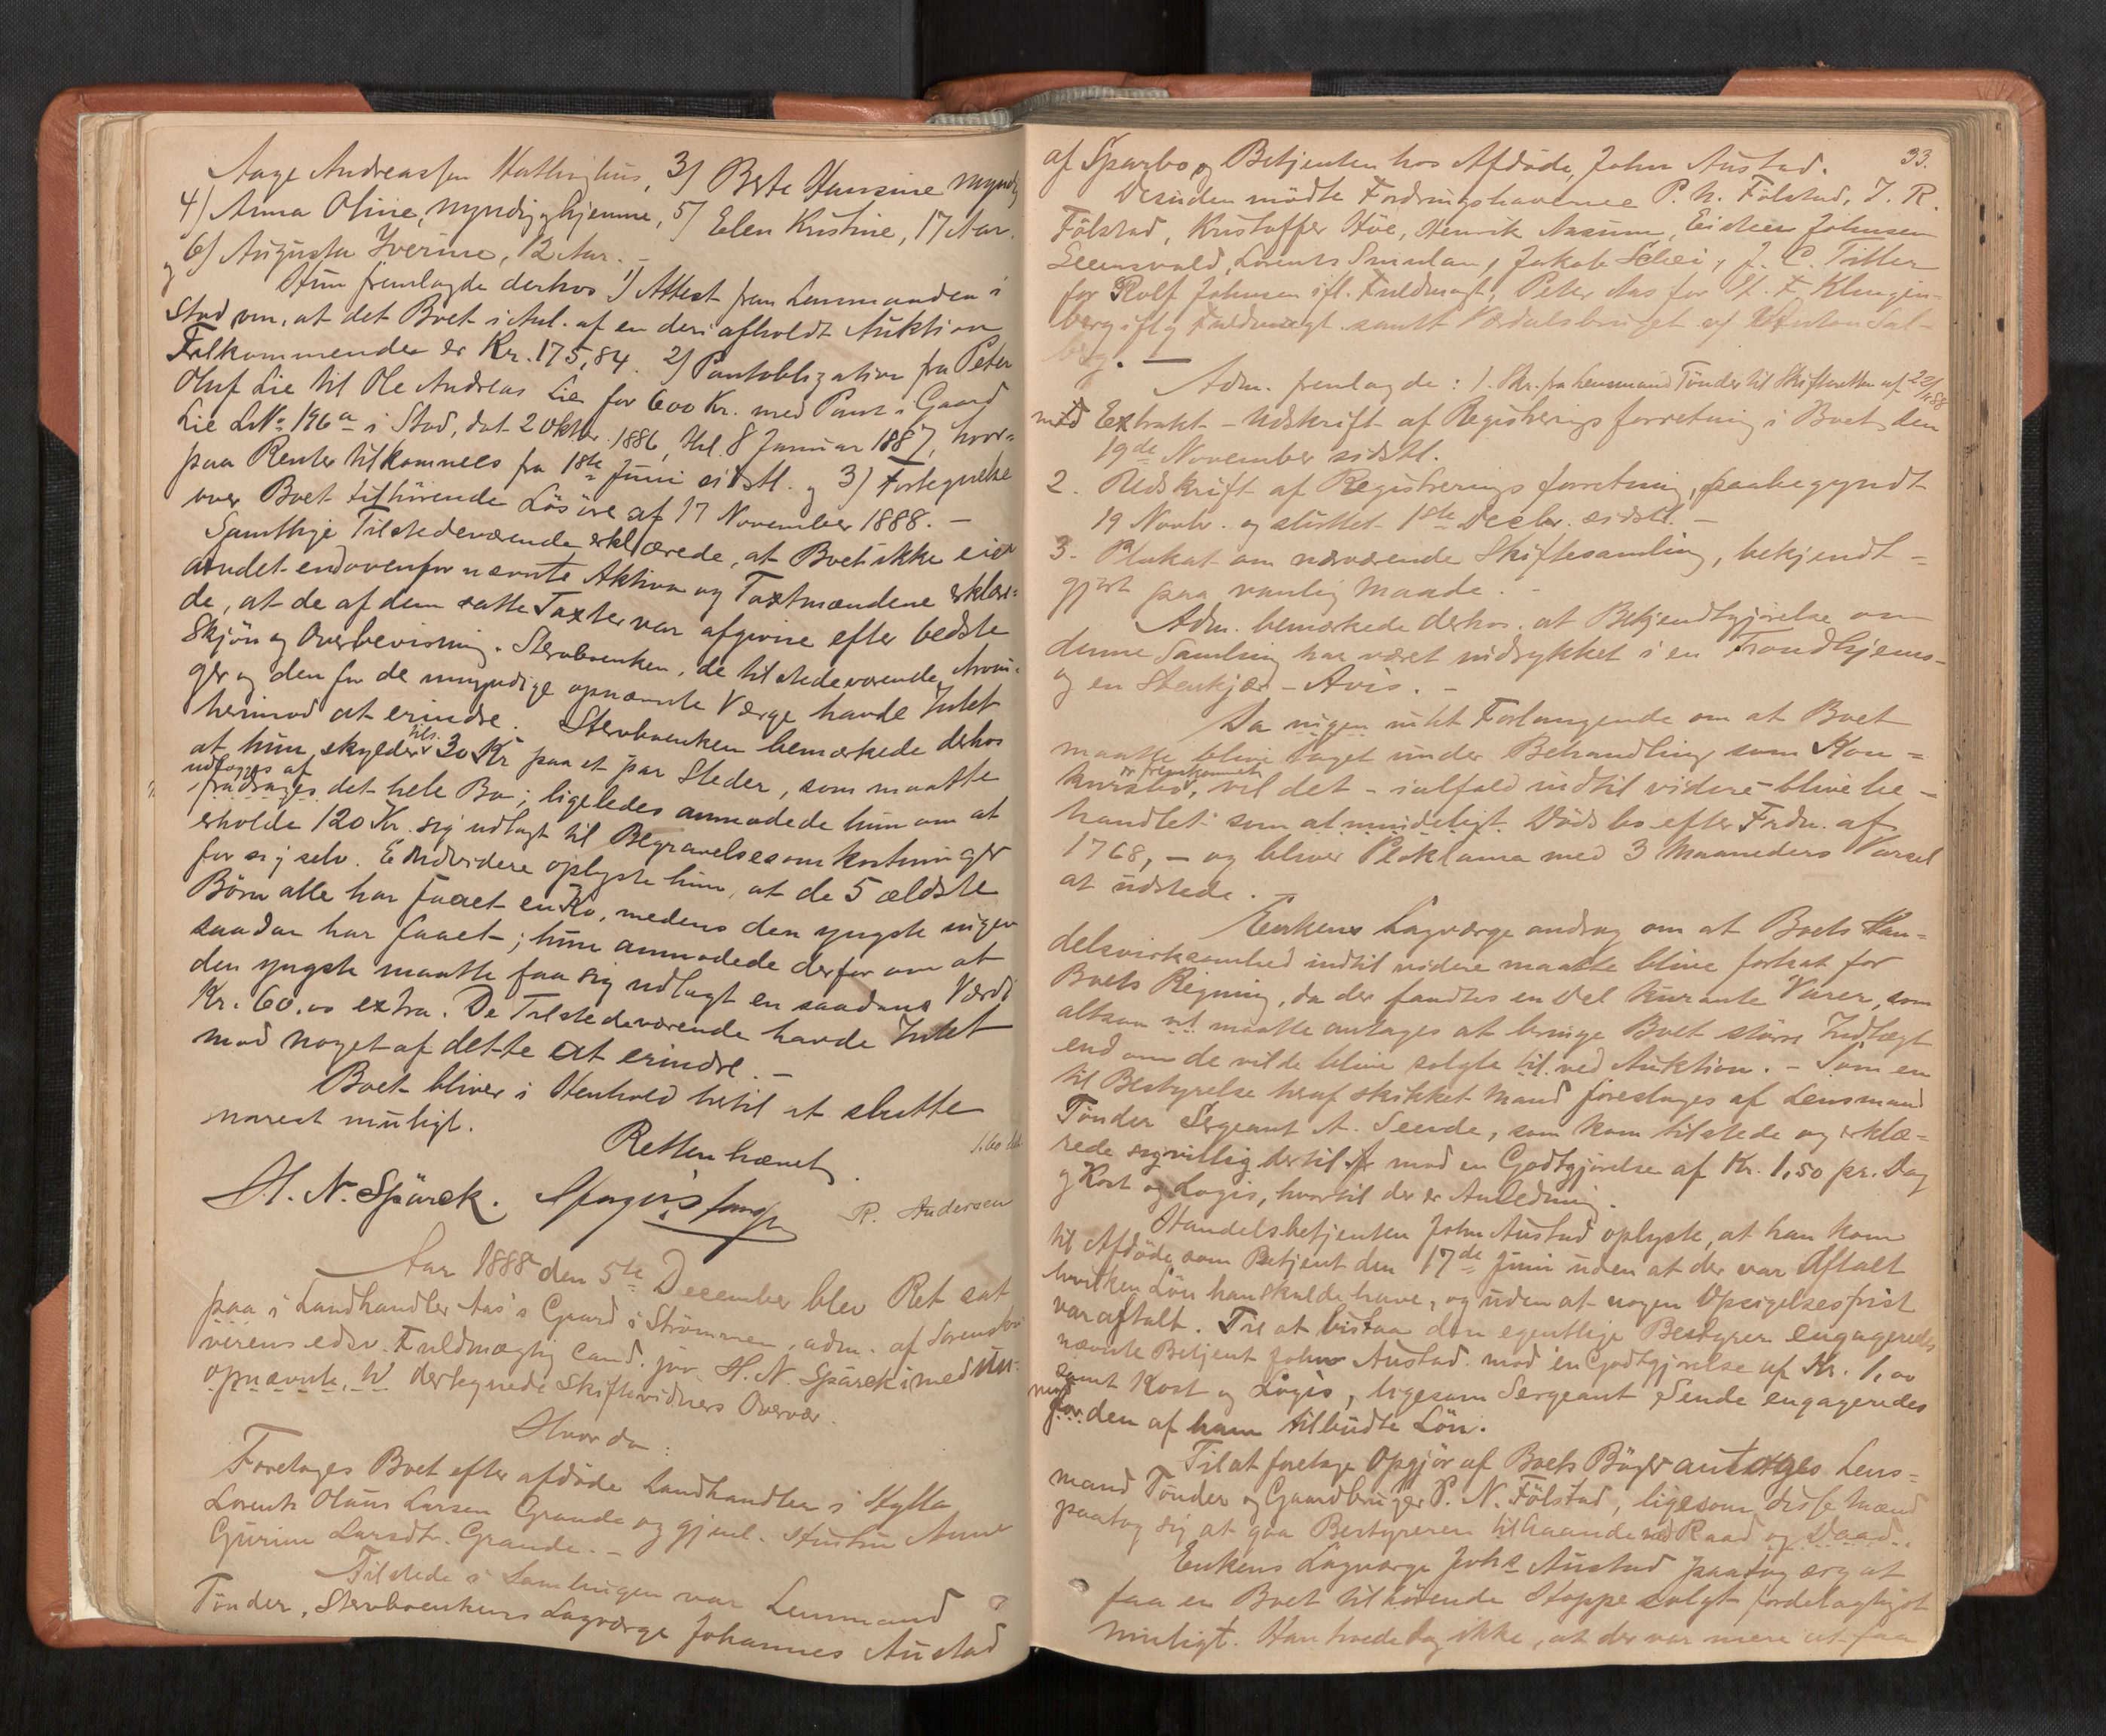 Aage Andreassen Hatlinghus, 3) Berte Hansine myndig
4) Anna Oline, myndig og hjemme, 5) Elen Kristine, 17 Aar.
og 6) Augusta Iverine, 12 Aar. –
Hun fremlagde derhos 1) Attest fra Lensmanden i
Stod om, at det Boet i Anl. af en deri afholdt Auktion
Tilkommende er Kr. 175,84. 2) Pantobligation fra Peter
Oluf Lie til Ole Andreas Lie for 600 Kr. med Pant i Gaard
Lie L.No 196a i Stod, dat. 2 Oktbr. 1886, thl. 8 Januar 1887, hvor=
paa Renter tilkommes fra 1ste Juni sidstl. og 3) Fortegnelse
over Boet tilhörende Lösöre af 17 November 1888. –
Samtlige Tilstedeværende erklærede, at Boet ikke eier
andet end ovenfor nævnte Aktiva og Taxtmændene erklære=
de, at de af dem satte Taxter var afgivne efter bedste
Skjön og Overbevisning. Stervboenken, de tilstedeværende Arvin=
ger og den for de umyndige opnævnte Værge havde Intet
herimod at erindre. Stervboenken bemærkede derhos
at hun skylder tils. 30 Kr paa et par Steder, som maatte
udlægges af
fradrages det hele Bo; ligeledes anmodede hun om at
erholde 120 Kr. sig udlagt til Begravelsesomkostninger
for sig selv. Endvidere oplyste hun, at de 5 ældste
Börn alle har faaet en Ko, medens den yngste ingen
saadan har faaet; hun anmodede derfor om at
den yngste maatte faa sig udlagt en saadans Værdi
Kr. 60,00 extra. De Tilstedeværende havde Intet
mod noget af dette at erindre. –
Boet bliver i Henhold hertil at slutte
snarest muligt.
Retten hævet
H. N. Spärck.
R. Andersen
Aar 1888 den 5te December blev Ret sat
paa i Landhandler Aas's Gaard i Strömmen, adm. af Sorenskri
verens edsv. Fuldmægtig cand. jur. H. N. Spärck i med un=
opnævnte, W dertegnede Skiftevidners Overvær.
Hvorda:
Foretoges Boet efter afdöde Landhandler i Hylla
Lorents Olaus Larsen Grande og gjenl. Hustru Anne
Gurine Larsdtr. Grande. –
Tilstede i Samlingen var Lensmand
Tönder, Stervboenkens Lagværge Johannes Austad
33.
af Sparbo og Betjenten hos Afdöde, John Austad.
Desuden mödte Fordringshaverne P. N. Fölstad, J. R.
Fölstad, Kristoffer Höe, Henrik Aasum, Johnsen
Lorents Smulan, Jakob Schei, J. C. Tiller
for Rolf Johnsen ifl. Fuldmagt, Peter Aas for H. F. Klingen-
berg iflg Fuldmagt samt Værdalsbruget v/ Anton Sal-
berg. –
Adm. fremlagde: 1. Skr. fra Lensmand Tönder til Skifteretten af 22/11 88
med Extrakt-Udskrift af Registreringsforretning i Boet, den
19de November sidstl.
2. Udskrift af Registreringsforretning, paabegyndt
19 Novbr. og sluttet 1ste Decbr. sidstl. –
3. Plakat om nærværende Skiftesamling, bekjendt=
gjort paa vanlig Maade. –
Adm. bemærkede derhos, at Bekjendtgjörelse om
denne Samling har været indrykket i en Trondhjems-
og en Stenkjær-Avis. –
Da ingen intet Forlangende om at Boet
maatte blive taget under Behandling som Kon=
er fremkommet
kursbo, vil det – ialfald indtil videre – blive be-
handlet som almindeligt Dödsbo efter Frdn. af
1768, – og bliver Proklama med 3 Maaneders Varsel
at udstede. –
Enkens Lagværge androg om at Boets Han=
delsvirksomhed indtil videre maatte blive fortsat for
Boets Regning, da der fandtes en Del kurante Varer, som
altsaa maatte antages at bringe Boet större Indtægt
end om de vilde blive solgte til ved Auktion. – Som en
til Bestyrelse heraf skikket Mand foresloges af Lensmand
Tönder Sergeant A. Seende, som kom tilstede og erklæ=
rede sig villig dertil mod en Godtgjörelse af Kr. 1,50 pr. Dag
og Kost og Logis, hvortil der er Anledning.
Handelsbetjenten John Austad oplyste, at han kom
til Afdöde som Betjent den 17de Juni uden at der var Aftalt
hvilken Lön han skulde have, og uden at nogen Opsigelsesfrist
var aftalt. Til at bistaa den egentlige Bestyrer engageredes
nævnte Betjent John Austad mod en Godtgjörelse af Kr. 1,00
samt Kost og Logis, ligesom Sergeant Sende engageredes
mod
for den af ham tilbudte Lön.
Til at foretage Opgjör af Boets Böger antoges Lens=
mand Tönder og Gaardbruger P. N. Fölstad, ligesom disse Mænd
paatog sig at gaa Bestyreren tilhaande med Raad og Daad.
Enkens Lagværge Johs Austad paatog sig at
faa en Boet tilhörende Hoppe solgt fordelagtigst
muligt. Han troede dog ikke, at der var mere at faa